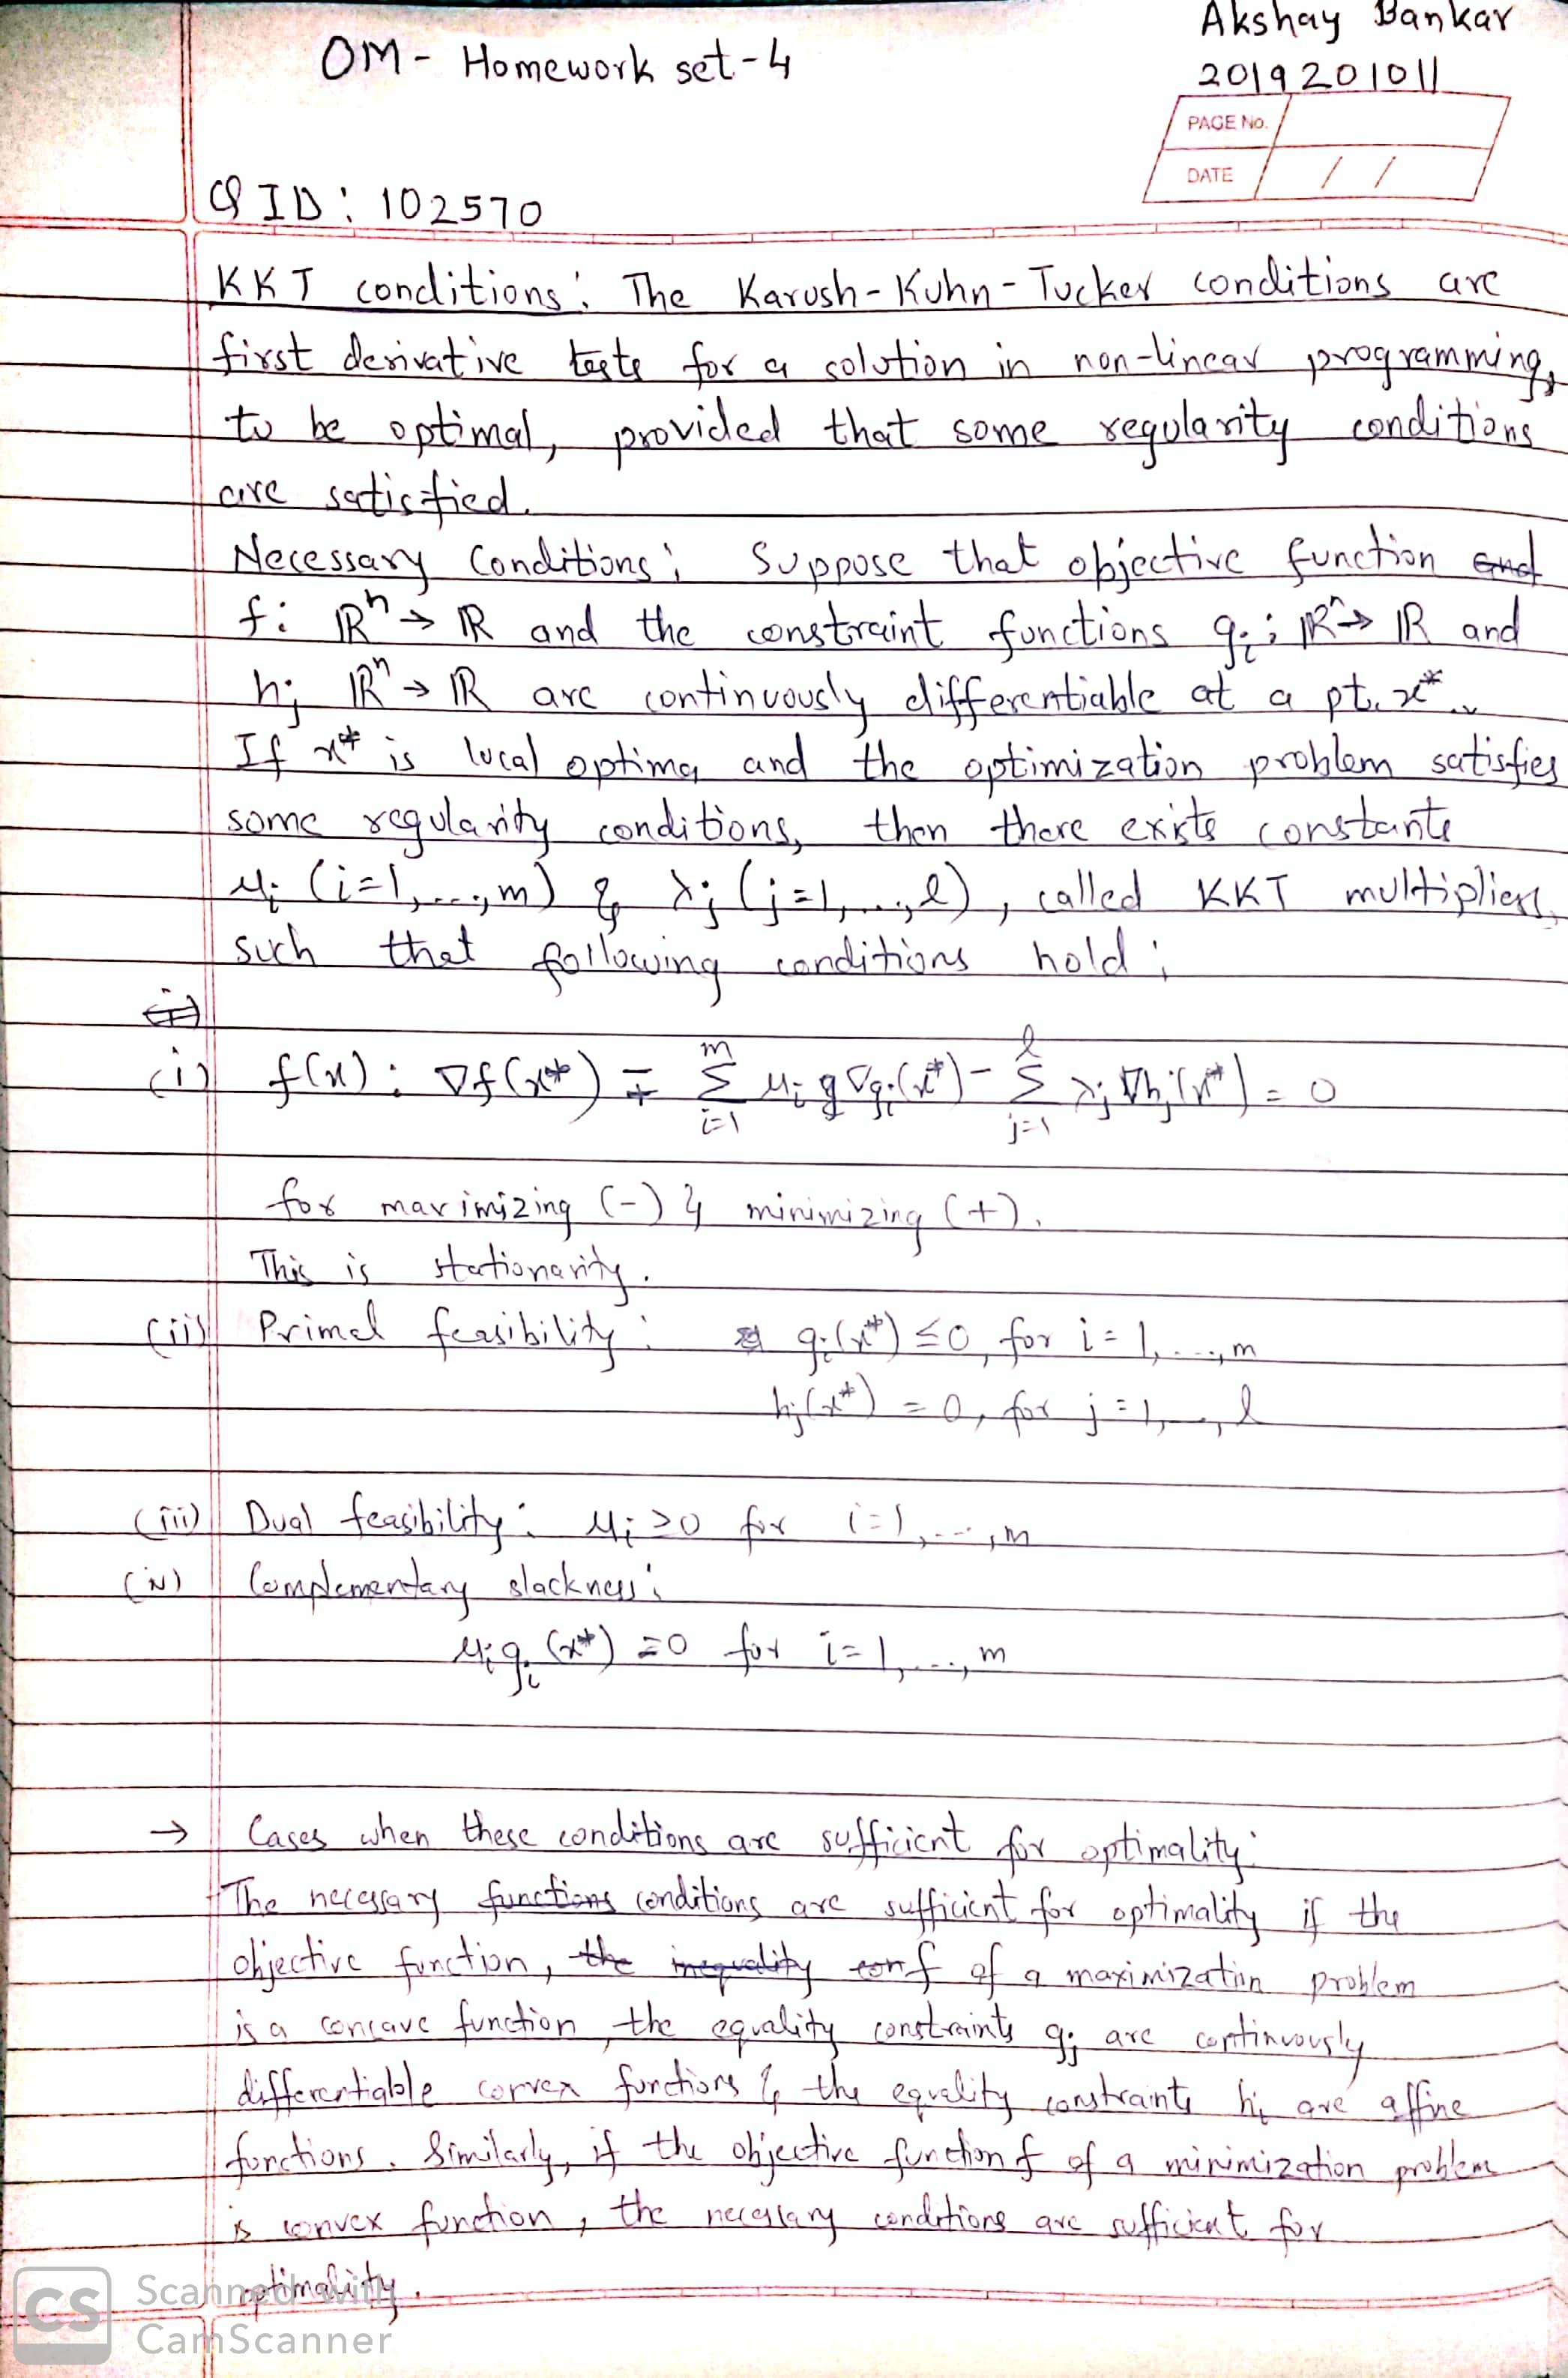 Akshay Bankar
OM - Homework set-4
2019201011
PAGE No.
DATE / /
Q ID: 102570
KKT conditions: The Karush-Kuhn-Tucker conditions are
first derivative tests for a solution in non-linear programming,
to be optimal, provided that some regularity conditions
are satisfied.
Necessary Conditions: Suppose that objective function and
f: ℝⁿ → ℝ and the constraint functions gᵢ: ℝⁿ → ℝ and
hⱼ ℝⁿ → ℝ are continuously differentiable at a pt. x*.
If x* is local optima and the optimization problem satisfies
some regularity conditions, then there exists constants
μᵢ (i=1,...,m) & λⱼ (j=1,...,l), called KKT multipliers,
such that following conditions hold:
(i)
(i) f(x): ∇f(x*) ∓ Σ_{i=1}^{m} μᵢ g ∇gᵢ(x*) - Σ_{j=1}^{l} λⱼ ∇hⱼ(x*) = 0
for maximizing (-) & minimizing (+).
This is stationarity.
(ii) Primal feasibility: gᵢ(x*) ≤ 0, for i = 1, ..., m
hⱼ(x*) = 0, for j = 1, ..., l
(iii) Dual feasibility: μᵢ ≥ 0 for i=1, ..., m
(iv) Complementary slackness:
μᵢgᵢ(x*) = 0 for i = 1, ..., m
→ Cases when these conditions are sufficient for optimality:
The necessary functions conditions are sufficient for optimality if the
objective function, the inequality con f of a maximization problem
is a concave function, the equality constraints gⱼ are continuously
differentiable convex functions & the equality constraints hᵢ are affine
functions. Similarly, if the objective function f of a minimization problem
is convex function, the necessary conditions are sufficient for
optimality.
CS Scanned with
CamScanner